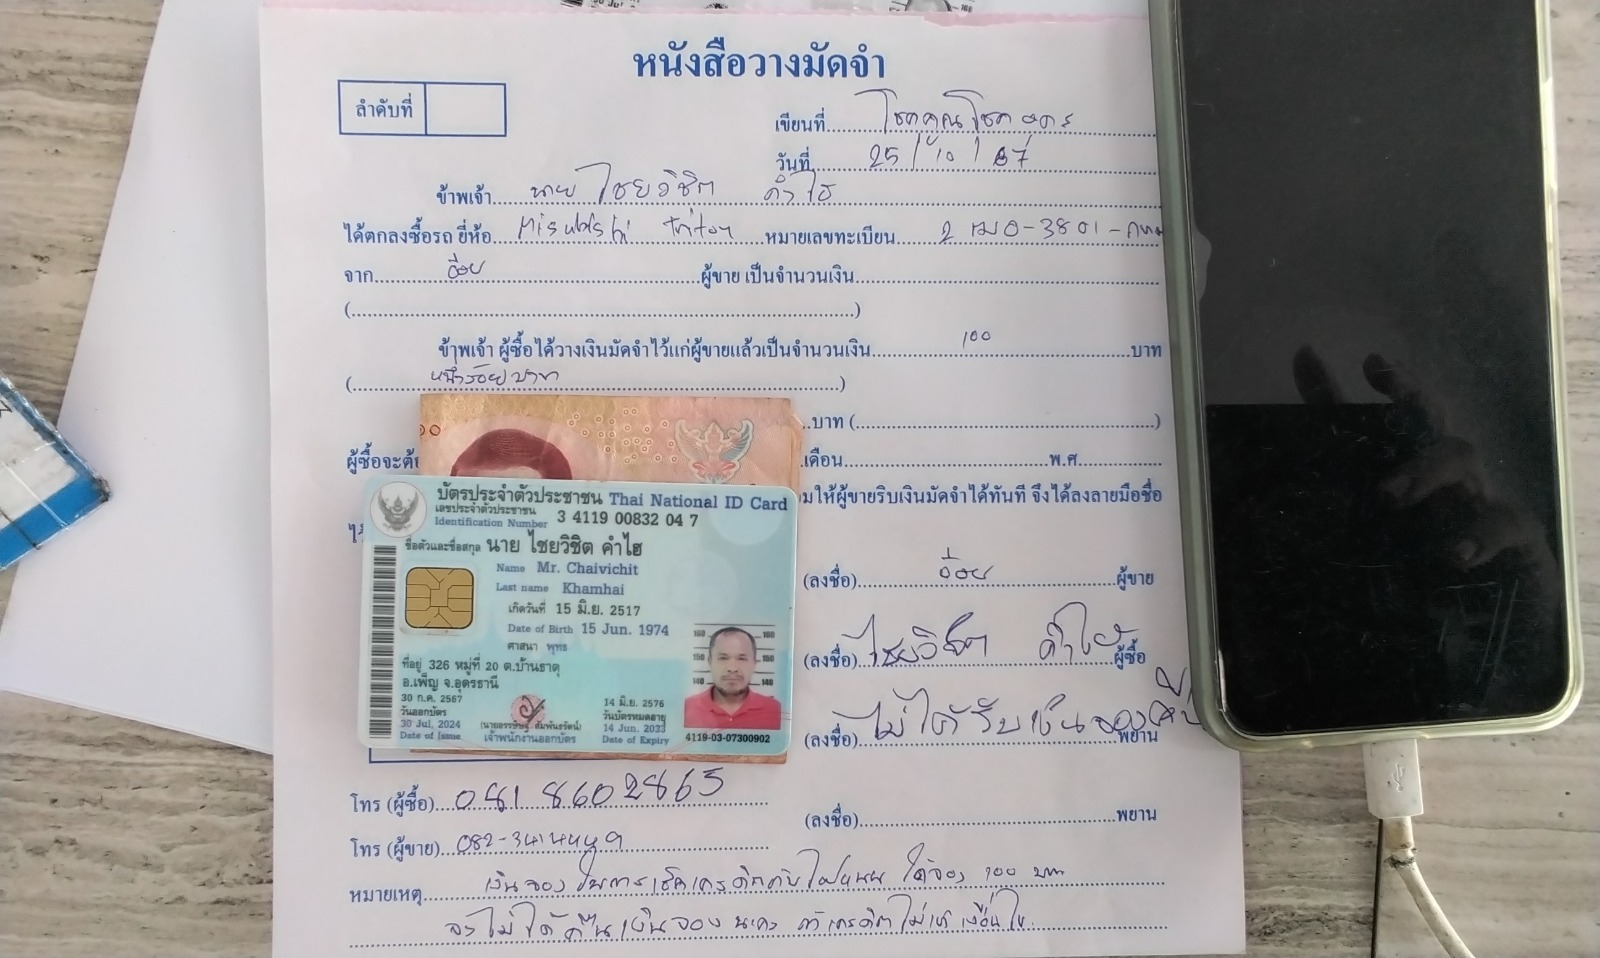 หนังสือวางมัดจำ
ลำดับที่
เขียนที่ โชคคูณโชค
วันที่ 25/10/67
ข้าพเจ้า นาย ไชยวิชิต คำไฮ
ได้ตกลงซื้อรถ ยี่ห้อ triton หมายเลขทะเบียน 2 ฒอ-3801-กทม
จาก อ้อย ผู้ขาย เป็นจำนวนเงิน
( )
ข้าพเจ้า ผู้ซื้อได้วางเงินมัดจำไว้แก่ผู้ขายแล้วเป็นจำนวนเงิน 100 บาท
(หนึ่งร้อยบาท)
บาท ( )
ผู้ซื้อจะต้ เดือน พ.ศ.
ให้ผู้ขายริบเงินมัดจำได้ทันที จึงได้ลงลายมือชื่อ
บัตรประจำตัวประชาชน Thai National ID Card
เลขประจำตัวประชาชน
Identification Number 3 4119 00832 04 7
ชื่อตัวและชื่อสกุล นาย ไชยวิชิต คำไฮ
Name Mr. Chaivichit
Last name Khamhai
เกิดวันที่ 15 มิ.ย. 2517
Date of Birth 15 Jun. 1974
ศาสนา พุทธ
ที่อยู่ 326 หมู่ที่ 20 ต.บ้านธาตุ
อ.เพ็ญ จ.อุดรธานี
30 ก.ค. 2567
วันออกบัตร
30 Jul. 2024
Date of Issue
เจ้าพนักงานออกบัตร
14 มิ.ย. 2576
วันบัตรหมดอายุ
14 Jun. 2033
Date of Expiry
160 160
150 150
140 140
4119-03-07300902
(ลงชื่อ) อ้อย ผู้ขาย
(ลงชื่อ) ไชยวิชิต คำไฮ ผู้ซื้อ
(ลงชื่อ) ไม่ได้รับเงินจองคืน พยาน
(ลงชื่อ) พยาน
โทร (ผู้ซื้อ) 081 8602865
โทร (ผู้ขาย) 082-
หมายเหตุ เงินจอง ในการเช็คเครดิตกับไฟแนน ได้จอง 100 บาท
จะไม่ได้คืนเงินจอง นะคะ ถ้าเครดิตไม่เข้าเงื่อนไข